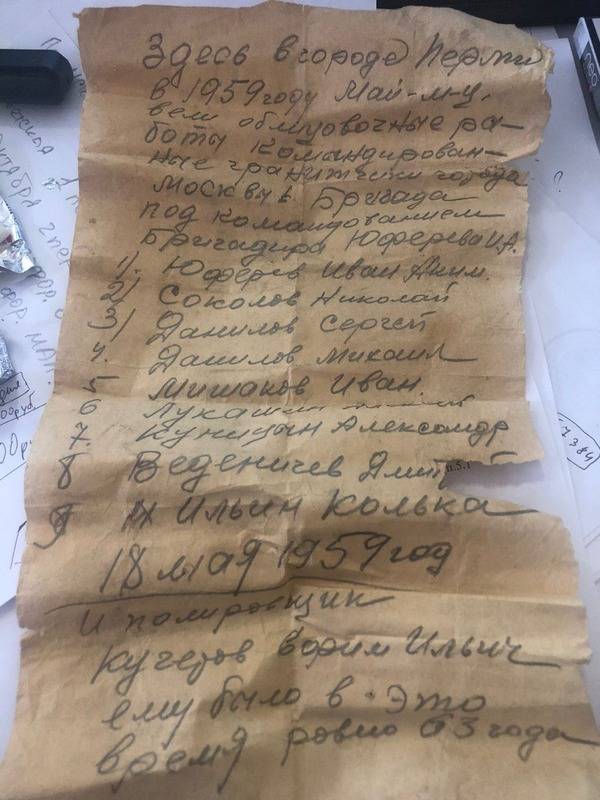 Здесь в городе Перми
в 1959 году Май-м-ц,
вели облицовочные ра-
боты командирован-
ные гранитчики города
Москвы. Бригада
под командованием
Бригадира Юферева И.А.
1). Юферев Иван Аким.
2) Соколов Николай
3) Данилов Сергей
4. Данилов Михаил
5 Мишаков Иван
6 Лукашин
7. Куницын Александр
8 Веденичев Дмит
9 Ильин Колька
18 мая 1959 год
и полировщик
Кучеров Вадим Ильич
ему было в это
время ровно 63 года